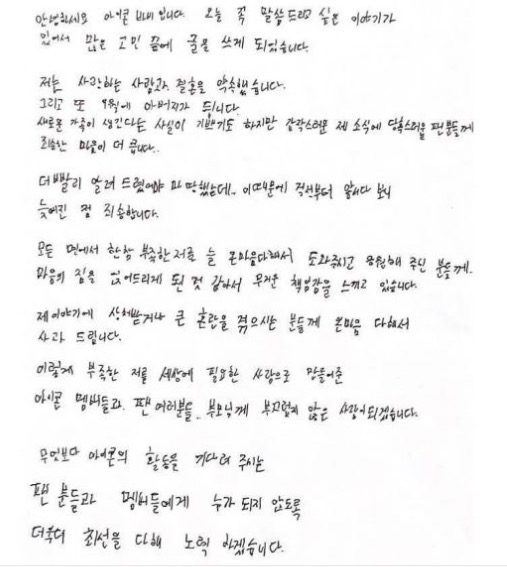 안녕하세요 아이콘 바비입니다. 오늘 꼭 말씀드리고 싶은 이야기가
있어서 많은 고민 끝에 글을 쓰게 되었습니다.
저는 사랑하는 사람과 결혼을 약속했습니다.
그리고 또 9월에 아버지가 됩니다.
새로운 가족이 생긴다는 사실이 기쁘기도 하지만 갑작스러운 제 소식에 당혹스러울 팬분들께
죄송한 마음이 더 큽니다..
더 빨리 알려 드렸어야 마땅했는데.. 이 때문에 걱정부터 앞서다 보니
늦어진 점 죄송합니다.
모든 면에서 한참 부족한 저를 늘 온마음 다해서 도와주시고 응원해 주신 분들께.
마음의 짐을 얹어드리게 된 것 같아서 무거운 책임감을 느끼고 있습니다.
제 이야기에 상처받거나 큰 혼란을 겪으시는 분들께 온마음 다해서
사과 드립니다.
이렇게 부족한 저를 세상에 필요한 사람으로 만들어준
아이콘 멤버들과. 팬 여러분들. 부모님께 부끄럽지 않은 사람이 되겠습니다.
무엇보다 아이콘의 활동을 기다려 주시는
팬 분들과 멤버들에게 누가 되지 않도록
더욱더 최선을 다해 노력 하겠습니다.